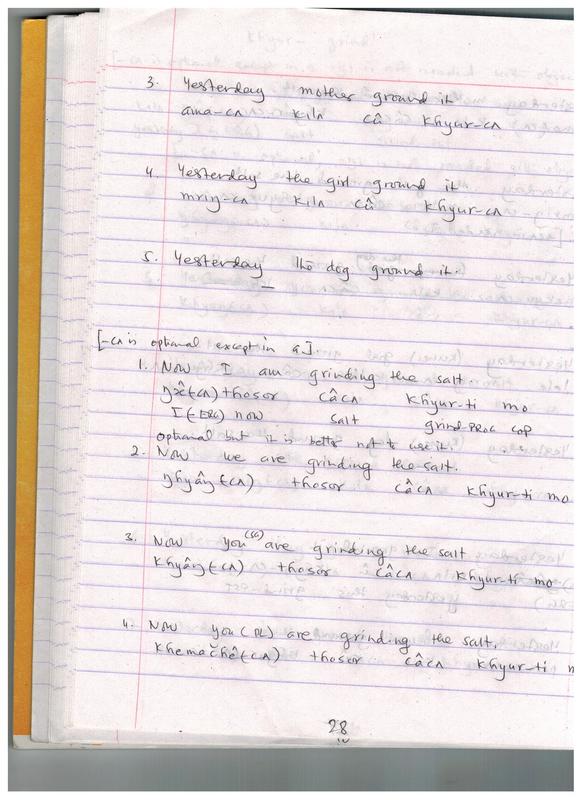 3. Yesterday mother ground it
ama-cʌ kilʌ cû khyur-cʌ
4. Yesterday the girl ground it
mriŋ-cʌ kilʌ cû khyur-cʌ
5. Yesterday the dog ground it.
[-cʌ is optional except in a].
1. Now I am grinding the salt.
(cʌ) thosor câcʌ khyur-ti mo
I (ERG) now salt grind-PROG COP
optional but it is better not to use it.
2. Now we are grinding the salt.
ŋhyâŋ (cʌ) thosor câcʌ khyur-ti mo
3. Now you (SG) are grinding the salt
khyâŋ (cʌ) thosor câcʌ khyur-ti mo
4. Now you (PL) are grinding the salt.
(cʌ) thosor câcʌ khyur-ti m
28